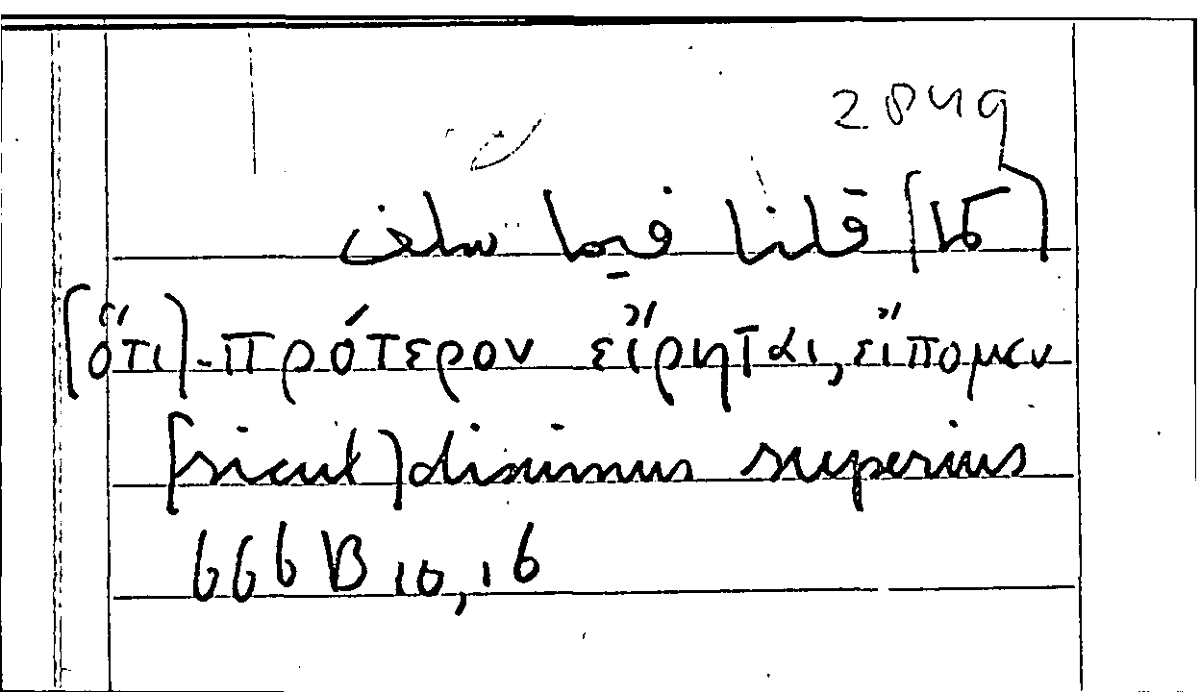 2049
[كما] قلنا فيما سلف
[ὅτι]-πρότερον εἴρηται, εἴπομεν
[sicut] diximus superius
666 B 10,16